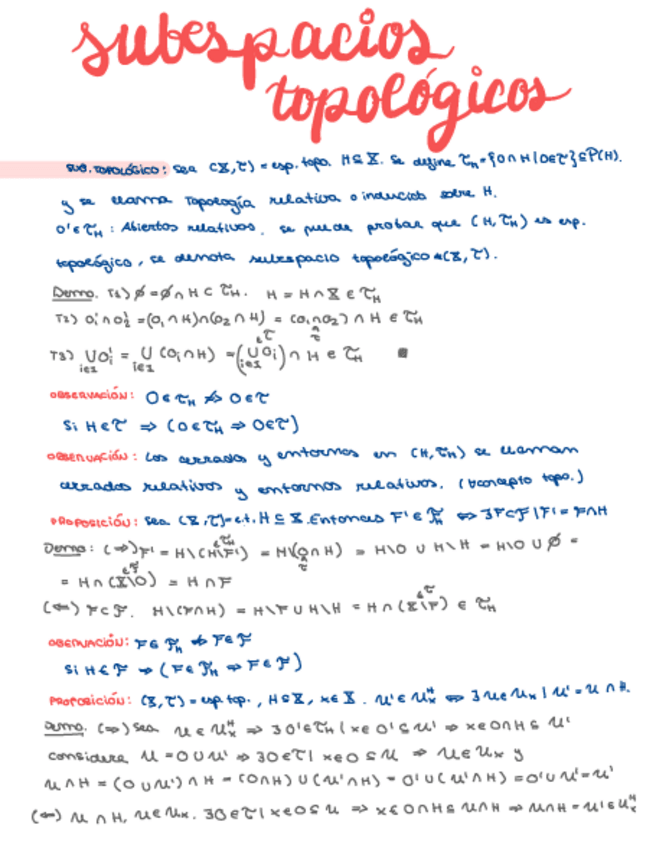 subespacios
topológicos
SUB. TOPOLÓGICO: sea (X, τ) = esp. topo. H ⊆ X. Se define τ_H = {O ∩ H | O ∈ τ} ⊆ P(H).
y se llama Topología relativa o inducida sobre H.
O' ∈ τ_H : Abiertos relativos. se puede probar que (H, τ_H) es esp.
topológico, se denota subespacio topológico (X, τ).
Demo. T1) ∅ = ∅ ∩ H ⊂ τ_H. H = H ∩ X ∈ τ_H
T2) O₁' ∩ O₂' = (O₁ ∩ H) ∩ (O₂ ∩ H) = (O₁ ∩ O₂) ∩ H ∈ τ_H
T3) ⋃_{i∈I} O_i' = ⋃_{i∈I} (O_i ∩ H) = (⋃_{i∈I} O_i) ∩ H ∈ τ_H ■
OBSERVACIÓN: O ∈ τ_H ⇏ O ∈ τ
Si H ∈ τ ⇒ (O ∈ τ_H ⇒ O ∈ τ)
OBSERVACIÓN: Los cerrados y entornos en (H, τ_H) se llaman
cerrados relativos y entornos relativos. (concepto topo.)
PROPOSICIÓN: sea (X, τ) = e.t. H ⊆ X. Entonces F' ∈ F_H ⇔ ∃F ∈ F | F' = F ∩ H
Demo: (⇒) F' = H\(H\F') = H\(O ∩ H) = H\O ∪ H\H = H\O ∪ ∅ =
= H ∩ (X\O) = H ∩ F
(⇐) F ∈ F. H\(F ∩ H) = H\F ∪ H\H = H ∩ (X\F) ∈ τ_H
OBSERVACIÓN: F ∈ F_H ⇏ F ∈ F
Si H ∈ F ⇒ (F ∈ F_H ⇒ F ∈ F)
PROPOSICIÓN: (X, τ) = esp. top., H ⊆ X, x ∈ X. U' ∈ U_x^H ⇔ ∃U ∈ U_x | U' = U ∩ H.
Demo. (⇒) Sea U ∈ U_x^H ⇒ ∃O' ∈ τ_H | x ∈ O' ⊆ U' ⇒ x ∈ O ∩ H ⊆ U'
considera U = O ∪ U' ⇒ ∃O ∈ τ | x ∈ O ⊆ U ⇒ U ∈ U_x y
U ∩ H = (O ∪ U') ∩ H = (O ∩ H) ∪ (U' ∩ H) = O' ∪ (U' ∩ H) = O' ∪ U' = U'
(⇐) U ∩ H, U ∈ U_x. ∃O ∈ τ | x ∈ O ⊆ U ⇒ x ∈ O ∩ H ⊆ U ∩ H ⇒ U ∩ H = U' ∈ U_x^H